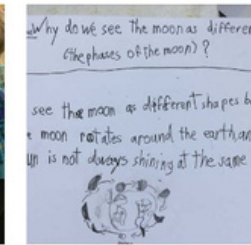 Why do we see the moon as differen
(the phases of the moon)?
see the moon as different shapes b
e moon rotates around the earth, an
un is not always shining at the same